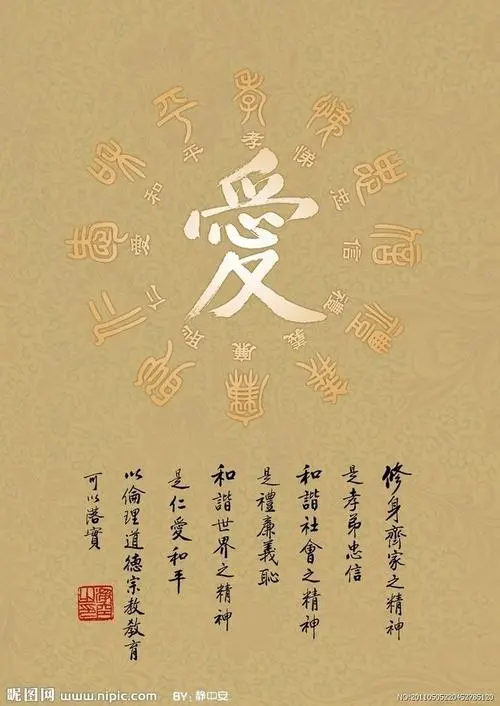 愛
孝悌忠信禮義廉恥仁愛和平
孝悌忠信禮義廉恥仁愛和平
修身齊家之精神
是孝弟忠信
和諧社會之精神
是禮廉義恥
和諧世界之精神
是仁愛和平
以倫理道德宗教教育
可以落實
昵图网 www.nipic.com BY:静中安
NO:20110505220452785120